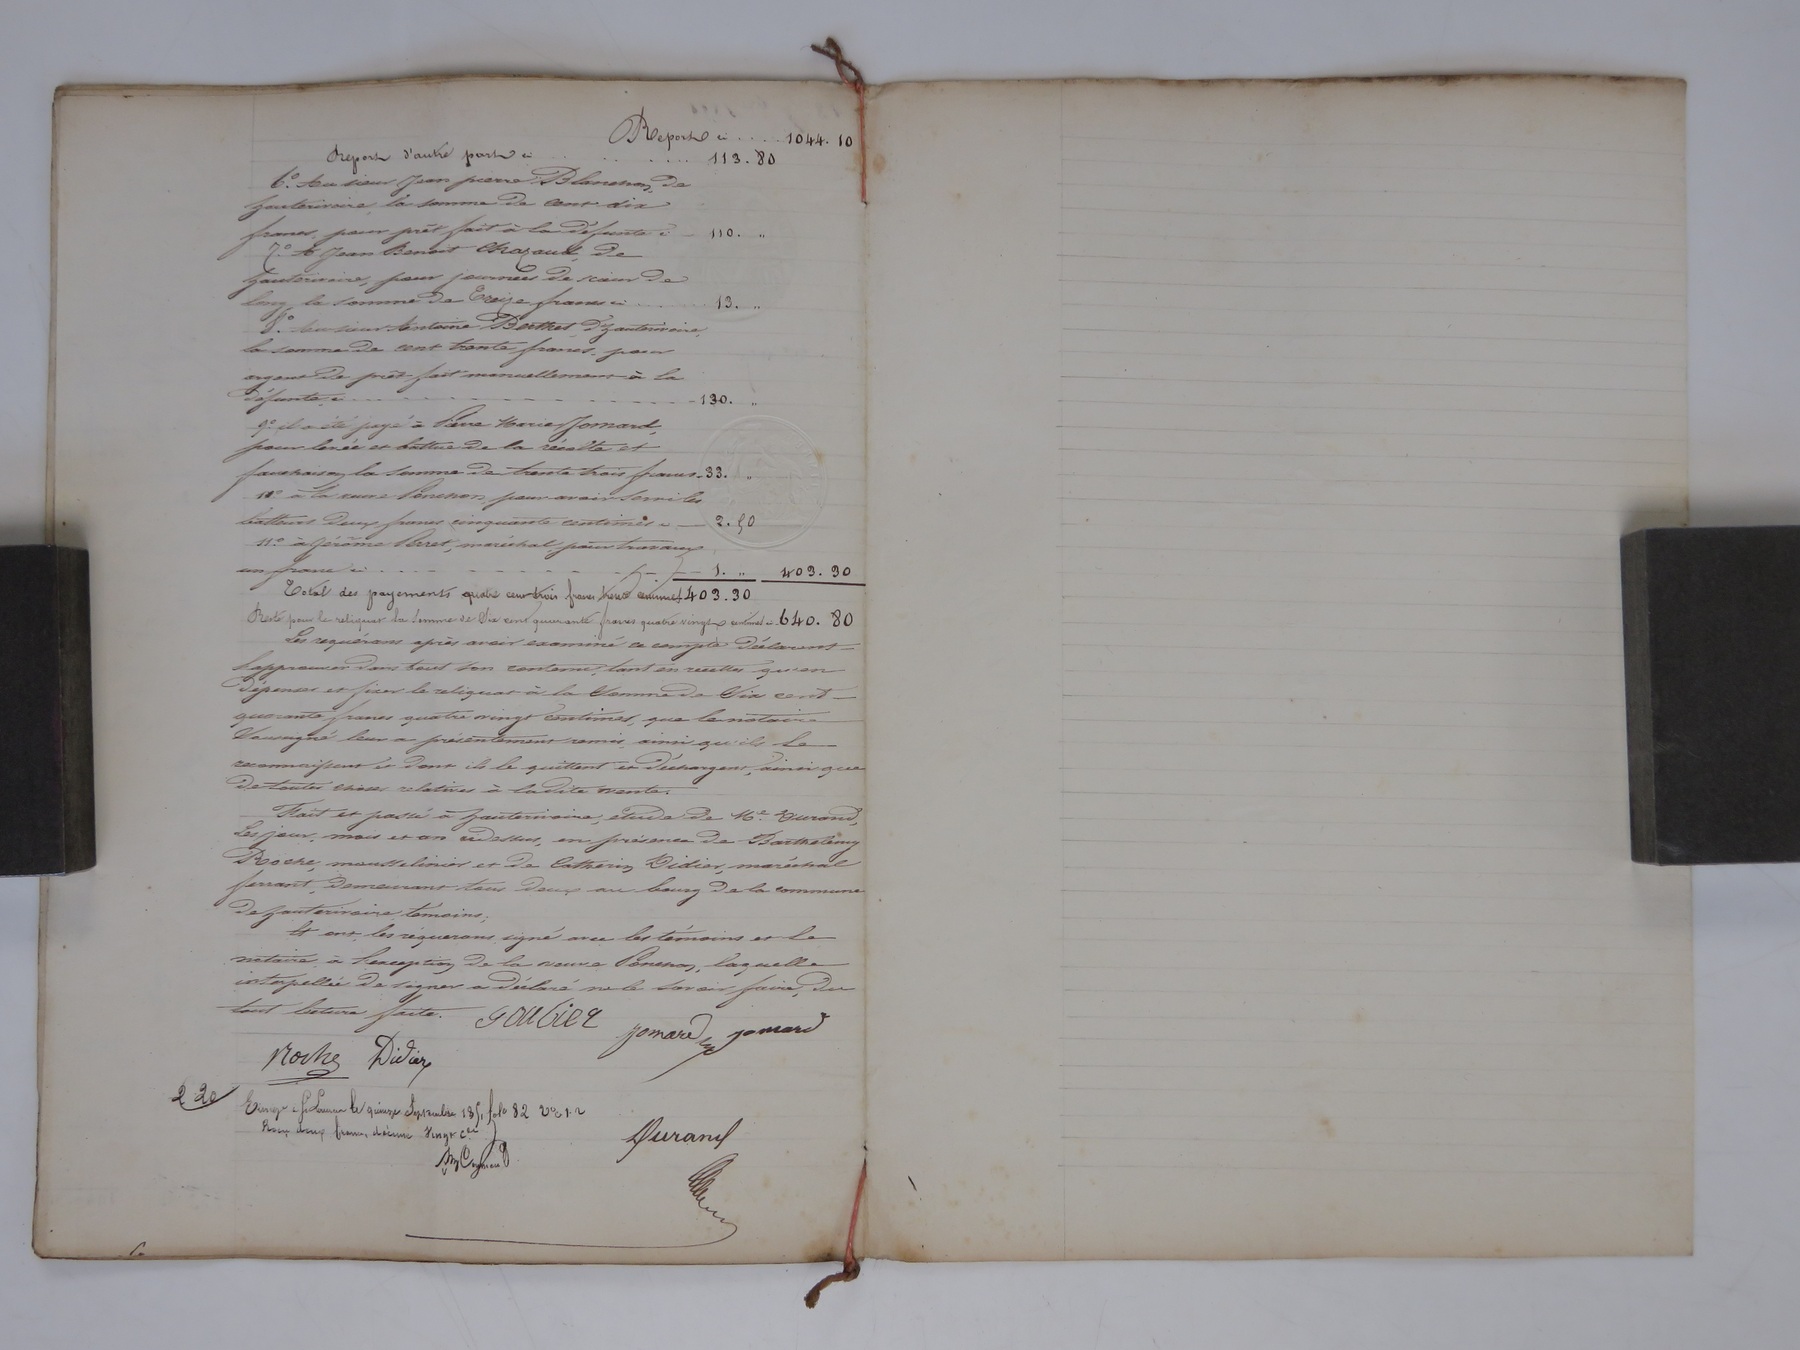 Report ci .... 1044. 10
Report d'autre part ci ... 113. 80
6.° Au sieur Jean pierre Blanchon, de
hauterivoire, la somme de cent dix
francs, pour prêt fait à la défunte ci — 110. „
7.° A Jean Benoit Chazaud, de
hauterivoire, pour journées de scieur de
long, la somme de treize francs ci ... 13. „
8.° Au sieur Antoine Berthet, d'hauterivoire,
la somme de cent trente francs, pour
argent de prêt fait manuellement à la
défunte, ci - - - - 130. „
9.° il a été payé à Pierre Marie Jomard,
pour levée et battue de la récolte et
fauchaison la somme de trente trois francs. 33. „
10.° à la veuve Ponchon, pour avoir servi les
batteurs deux francs cinquante centimes ci — 2. 50
11.° à Jérôme Perret, maréchal, pour travaux
un franc ci - - - - 1. „ 403. 30
Total des payements quatre cent trois francs trente centimes 403. 30
Reste pour le reliquat la somme de Six cent quarante francs quatre vingts centimes ci. 640. 80
Les requérans après avoir examiné ce compte déclarent
l'approuver dans tout son contenu, tant en recettes qu'en
dépenses et fixer le reliquat à la Somme de Six cent
quarante francs quatre vingt centimes, que le notaire
Soussigné leur a présentement remis, ainsi qu'ils le
reconnaissent et dont ils le quittent et déchargent, ainsi que
de toutes choses relatives à ladite vente.
Fait et passé à hauterivoire, étude de M.e Durand,
Les jour, mois et an susdits, en présence de Barthélemy
Roche, mousselinier et de Catherin Didier, maréchal
ferrant, demeurant tous deux au bourg de la commune
de hauterivoire témoins;
Et ont, les requérans signé avec les témoins et le
notaire à l'exception de la veuve Ponchon, laquelle
interpellée de signer a déclaré ne le savoir faire, du
tout lecture faite. goubier
jomard jomard
Roche Didier
2 20
le quinze Septembre 185 folo 82 vo
Reçu deux francs décime vingt c.es
Durand